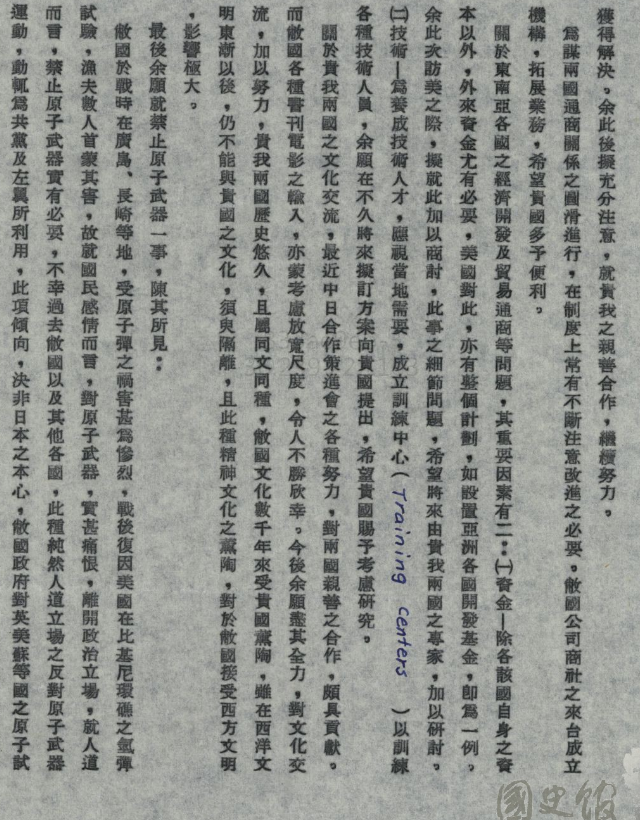 獲得解決。余此後擬充分注意,就貴我之親善合作,繼續努力。
為謀兩國通商關係之圓滑進行,在制度上常有不斷注意改進之必要。敝國公司商社之來台成立
機構,拓展業務,希望貴國多予便利。
關於東南亞各國之經濟開發及貿易通商等問題,其重要因素有二:㈠資金—除各該國自身之資
本以外,外來資金尤有必要,美國對此,亦有整個計劃,如設置亞洲各國開發基金,即為一例。
余此次訪美之際,擬就此加以商討,此事之細節問題,希望將來由貴我兩國之專家,加以研討。
㈡技術—為養成技術人才,應視當地需要,成立訓練中心(Training centers)以訓練
各種技術人員,余願在不久將來擬訂方案向貴國提出,希望貴國賜予考慮研究。
關於貴我兩國之文化交流,最近中日合作策進會之各種努力,對兩國親善之合作,頗具貢獻。
而敝國各種書刊電影之輸入,亦蒙考慮放寬尺度,令人不勝欣幸。今後余願盡其全力,對文化交
流,加以努力,貴我兩國歷史悠久,且屬同文同種,敝國文化數千年來受貴國薰陶,雖在西洋文
明東漸以後,仍不能與貴國之文化,須臾隔離,且此種精神文化之薰陶,對於敝國接受西方文明
,影響極大。
最後余願就禁止原子武器一事,陳其所見:
敝國於戰時在廣島、長崎等地,受原子彈之禍害甚為慘烈,戰後復因美國在比基尼環礁之氫彈
試驗,漁夫數人首蒙其害,故就國民感情而言,對原子武器,實甚痛恨,離開政治立場,就人道
而言,禁止原子武器實有必要,不幸過去敝國以及其他各國,此種純然人道立場之反對原子武器
運動,動輒為共黨及左翼所利用,此項傾向,決非日本之本心,敝國政府對英美蘇等國之原子試
國史館